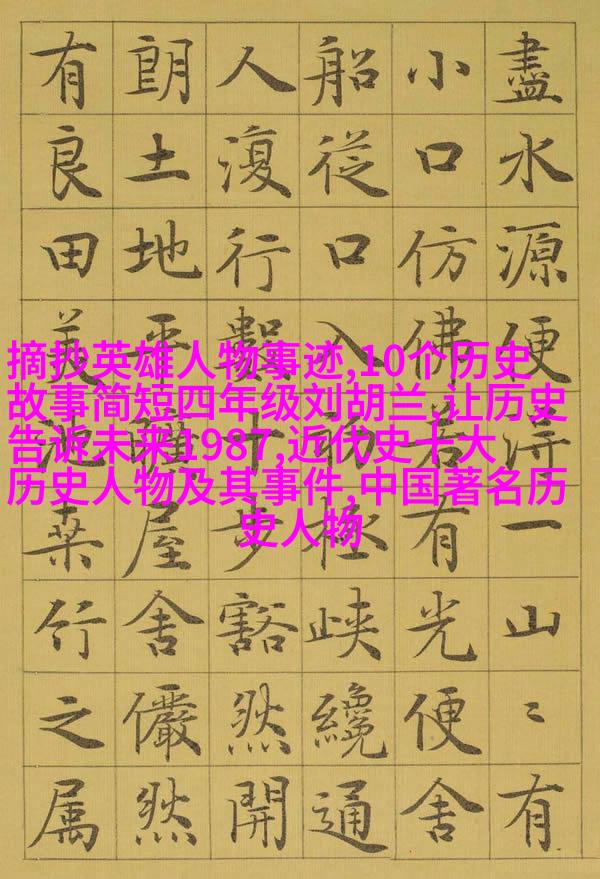 盡水源便得一山〻有
小口仿佛若有光便舍
船從口入初極峽纔通
人復行數十步豁然開
朗土地平曠屋舍儼然
有良田美池桑竹之属
摘抄英雄人物事迹,10个历史
故事简短四年级刘胡兰,让历史
告诉未来1987,近代史十大
历史人物及其事件,中国著名历
史人物